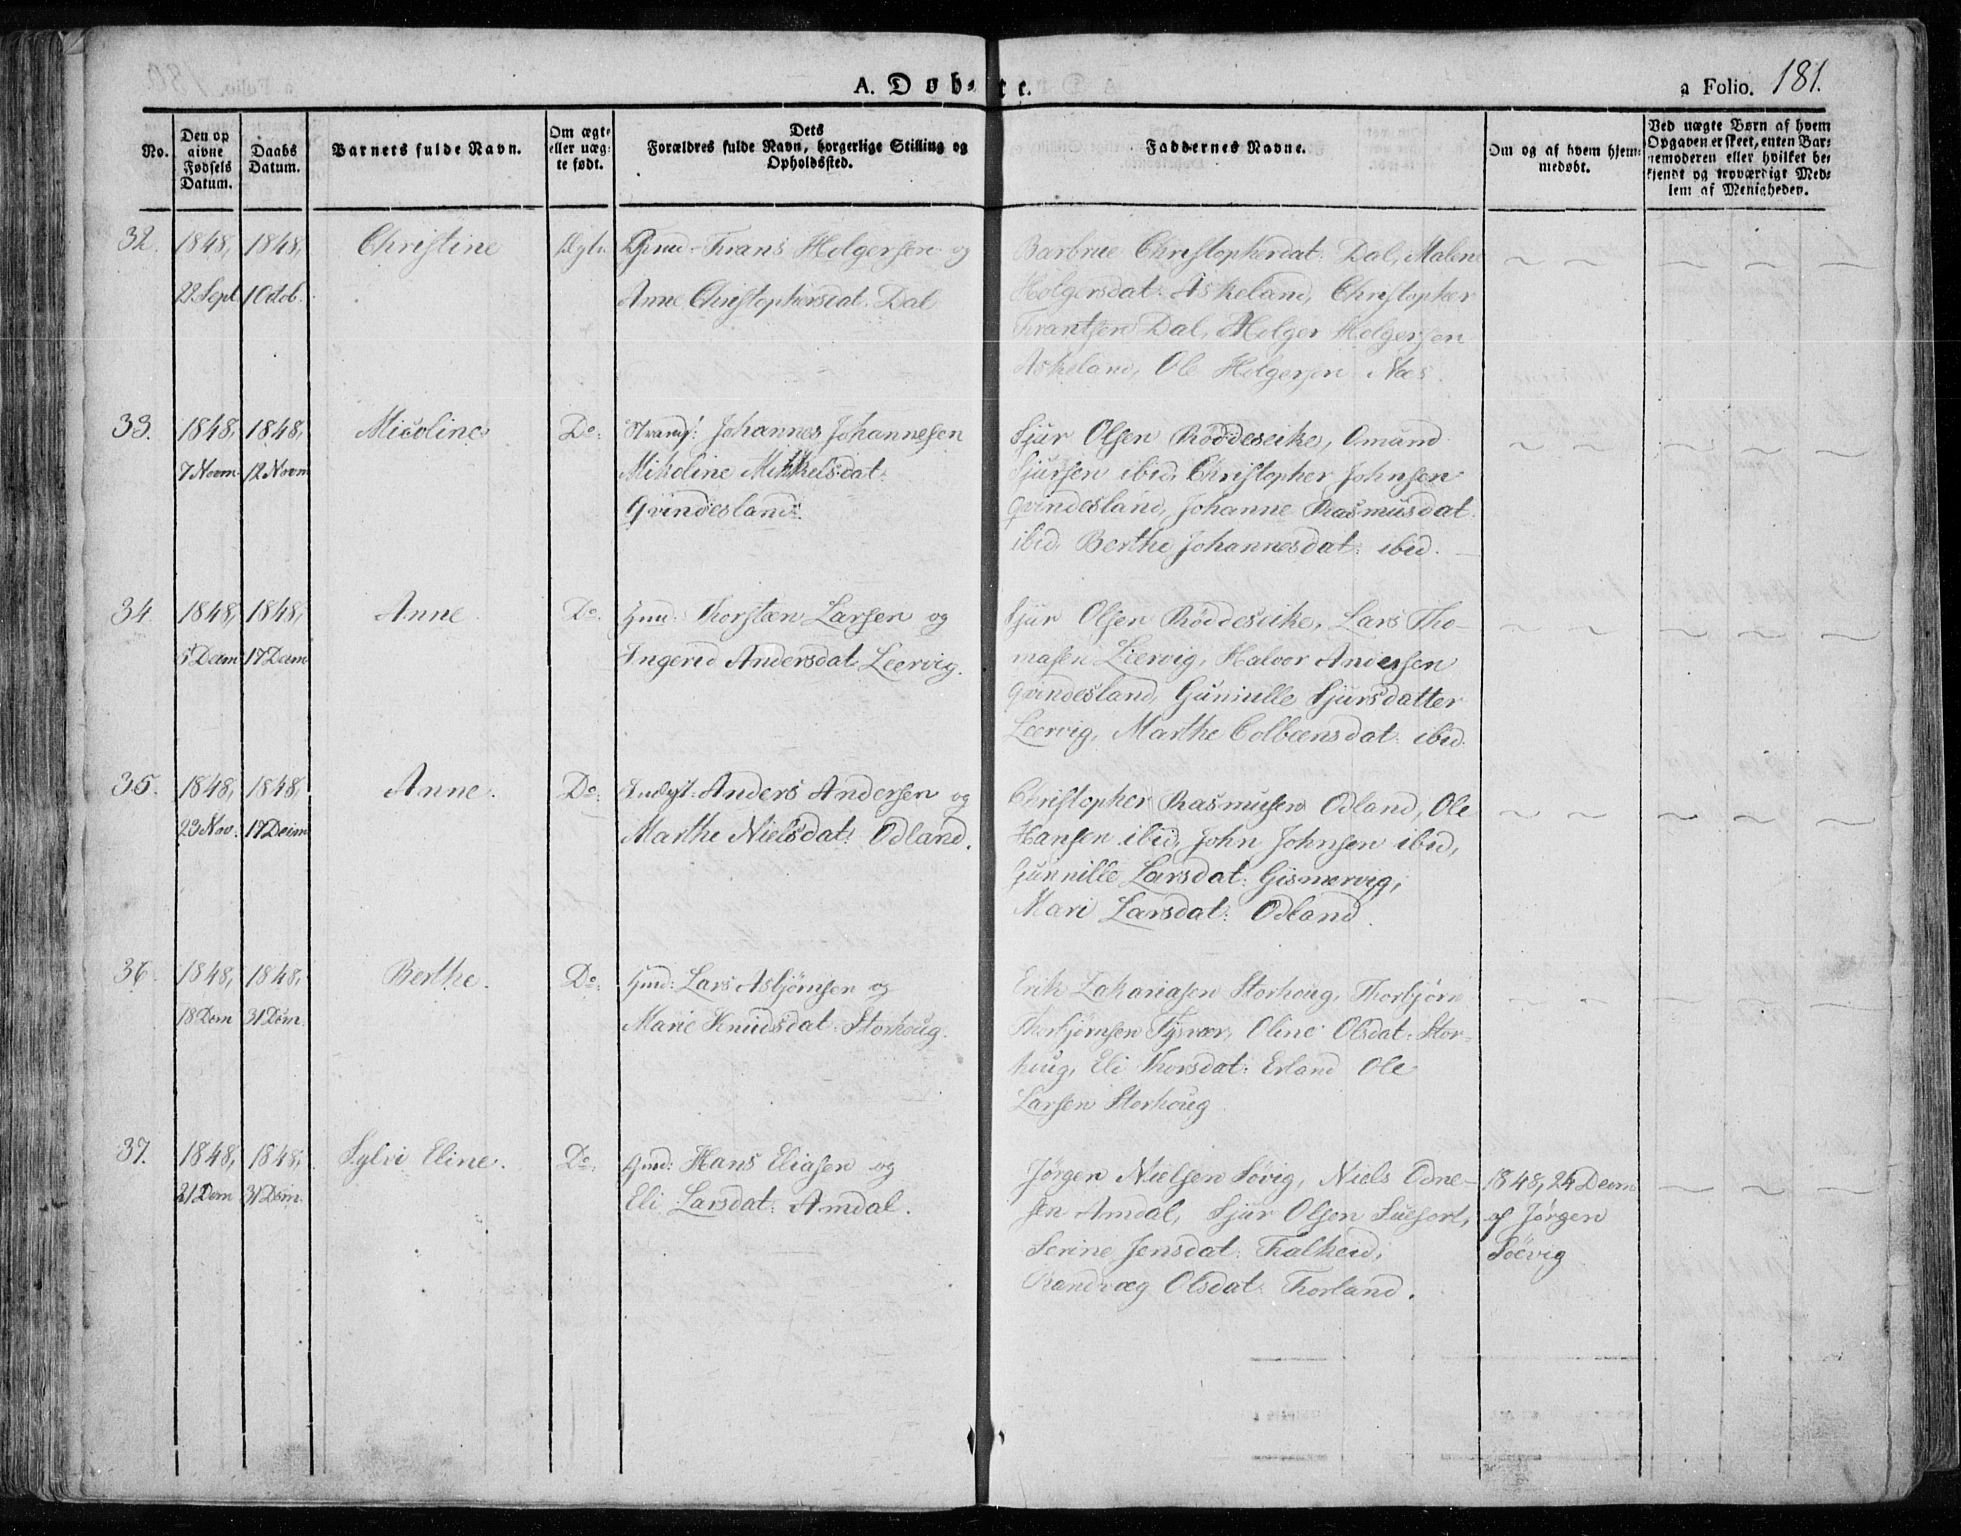 A. Døbte.
a Folio. 181.
No.
Den op givne Fødsels Datum.
Daabs Datum.
Barnets fulde Navn.
Om ægte eller uægte født.
Dets Forældres fulde Navn, borgerlige Stilling og Opholdssted.
Faddernes Navne.
Om og af hvem hjemmedøbt.
Ved uægte Børn af hvem Opgaven er skeet, enten Barnemoderen eller hvilket bekjendt og troværdigt Medlem af Menigheden.
32. 1848, 1848, Christine Ægte Frans Holgersen og
28 Sept 1 Octob. Anne Christophersdat. Dal
Barbrue Christopherdat: Dal, Malene
Holgersdat: Askeland, Christopher
Frantsen Dal, Holger Holgersen
Askeland, Ole Holgersen Næs.
33. 1848, 1848, Nicoline Do: Strands: Johannes Johannesen
7 Novm 12 Novm Mikoline Mikkelsdat:
Gvindesland
Sjur Olsen Røddeseike, Omund
Sjursen ibid, Christopher Johnsen
Gvindesland, Johanne Rasmusdat
ibid, Berthe Johannesdat: ibid.
34 1848, 1848, Anne Do. Gmd: Thorsten Larsen og
5 Decm 17 Decm Ingerid Andersdat. Leervig.
Sjur Olsen Røddeseike, Lars Tho-
masen Leervig, Halvor Andersen
Gvindesland, Gunnille Sjursdatter
Leervig, Marthe Colbeensdat: ibid.
35. 1848, 1848, Anne. Do: Indst: Anders Andersen og
23 Nov. 17 Decm Marthe Nielsdat: Odland.
Christopher Rasmusen Odland, Ole
Hansen ibid, John Johnsen ibid,
Gunnille Larsdat: Gismervig,
Mari Larsdat: Odland.
36 1848, 1848, Berthe. Do: Gmd: Lars Asbjørnsen og
18 Dcm 31 Dcm. Marie Knudsdat: Storhoug.
Erik Zakariasen Storhoug, Thorbjørn
Thorbjørnsen Tysvær, Oline Olsdat: Stor-
houg, Eli Thorsdat: Erland Ole
Larsen Storhoug
37. 1848, 1848, Sylvi Eline. Do: Gmd: Hans Eliasen og
21 Dcm 31 Dcm. Eli Larsdat: Amdal.
Jørgen Nielsen Søvig, Niels Odne-
sen Amdal, Sjur Olsen
Serine Jensdat: Falkeid,
Randvæg Olsdat: Thorland.
1848, 24 Decm
af Jørgen
Søevig